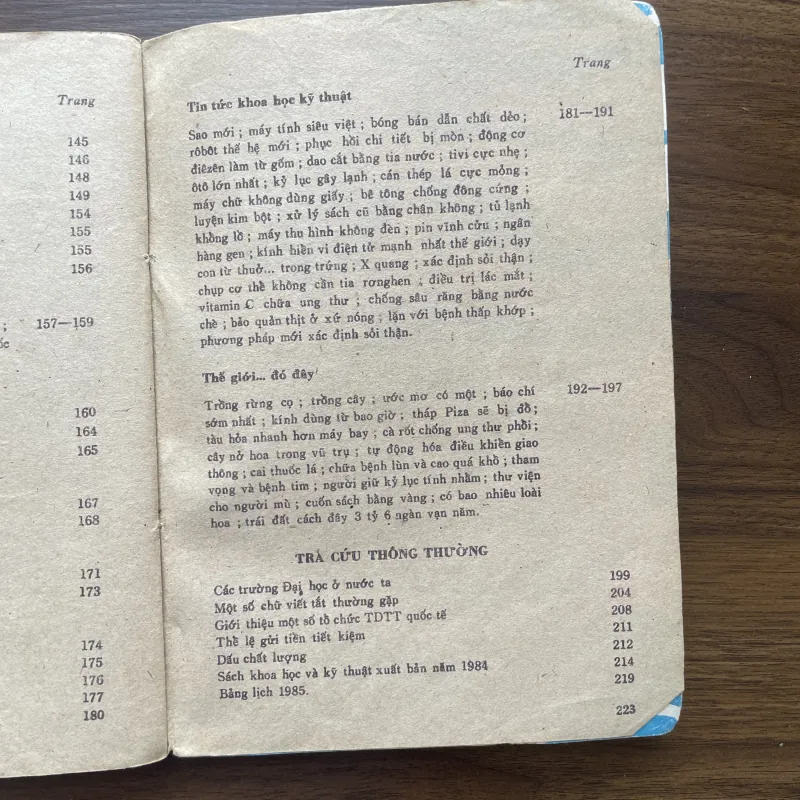 Trang
145
146
148
149
154
155
155
156
; 157—159
ốc
160
164
165
167
168
171
173
174
175
176
177
180
Trang
Tin tức khoa học kỹ thuật
Sao mới ; máy tính siêu việt ; bóng bán dẫn chất dẻo ; 181—191
rôbôt thế hệ mới ; phục hồi chi tiết bị mòn ; động cơ
điêzên làm từ gốm ; dao cắt bằng tia nước ; tivi cực nhẹ ;
ôtô lớn nhất ; kỷ lục gây lạnh ; cán thép lá cực mỏng ;
máy chữ không dùng giấy ; bê tông chống đông cứng ;
luyện kim bột ; xử lý sách cũ bằng chân không ; tủ lạnh
khổng lồ ; máy thu hình không đèn ; pin vĩnh cửu ; ngân
hàng gen ; kính hiển vi điện tử mạnh nhất thế giới ; dạy
con từ thuở... trong trứng ; X quang ; xác định sỏi thận ;
chụp cơ thể không cần tia rơnghen ; điều trị lác mắt ;
vitamin C chữa ung thư ; chống sâu răng bằng nước
chè ; bảo quản thịt ở xứ nóng ; lặn với bệnh thấp khớp ;
phương pháp mới xác định sỏi thận.
Thế giới... đó đây
Trồng rừng cọ ; trồng cây ; ước mơ có một ; báo chí 192—197
sớm nhất ; kính dùng từ bao giờ ; tháp Piza sẽ bị đổ ;
tàu hỏa nhanh hơn máy bay ; cà rốt chống ung thư phổi ;
cây nở hoa trong vũ trụ ; tự động hóa điều khiển giao
thông ; cai thuốc lá ; chữa bệnh lùn và cao quá khổ ; tham
vọng và bệnh tim ; người giữ kỷ lục tính nhẩm ; thư viện
cho người mù ; cuốn sách bằng vàng ; có bao nhiêu loài
hoa ; trái đất cách đây 3 tỷ 6 ngàn vạn năm.
TRA CỨU THÔNG THƯỜNG
Các trường Đại học ở nước ta 199
Một số chữ viết tắt thường gặp 204
Giới thiệu một số tổ chức TDTT quốc tế 208
Thể lệ gửi tiền tiết kiệm 211
Dấu chất lượng 212
Sách khoa học và kỹ thuật xuất bản năm 1984 214
Bảng lịch 1985. 219
223